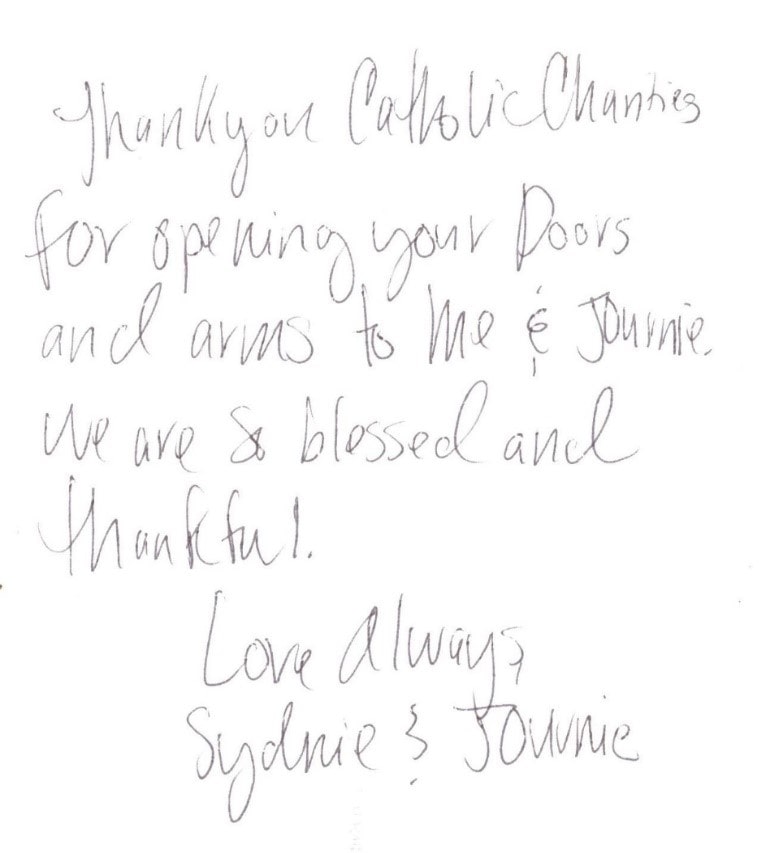 Thank you Catholic Charities
for opening your Doors
and arms to Me & Journie.
We are so blessed and
thankful.
Love Always,
Sydnie & Journie